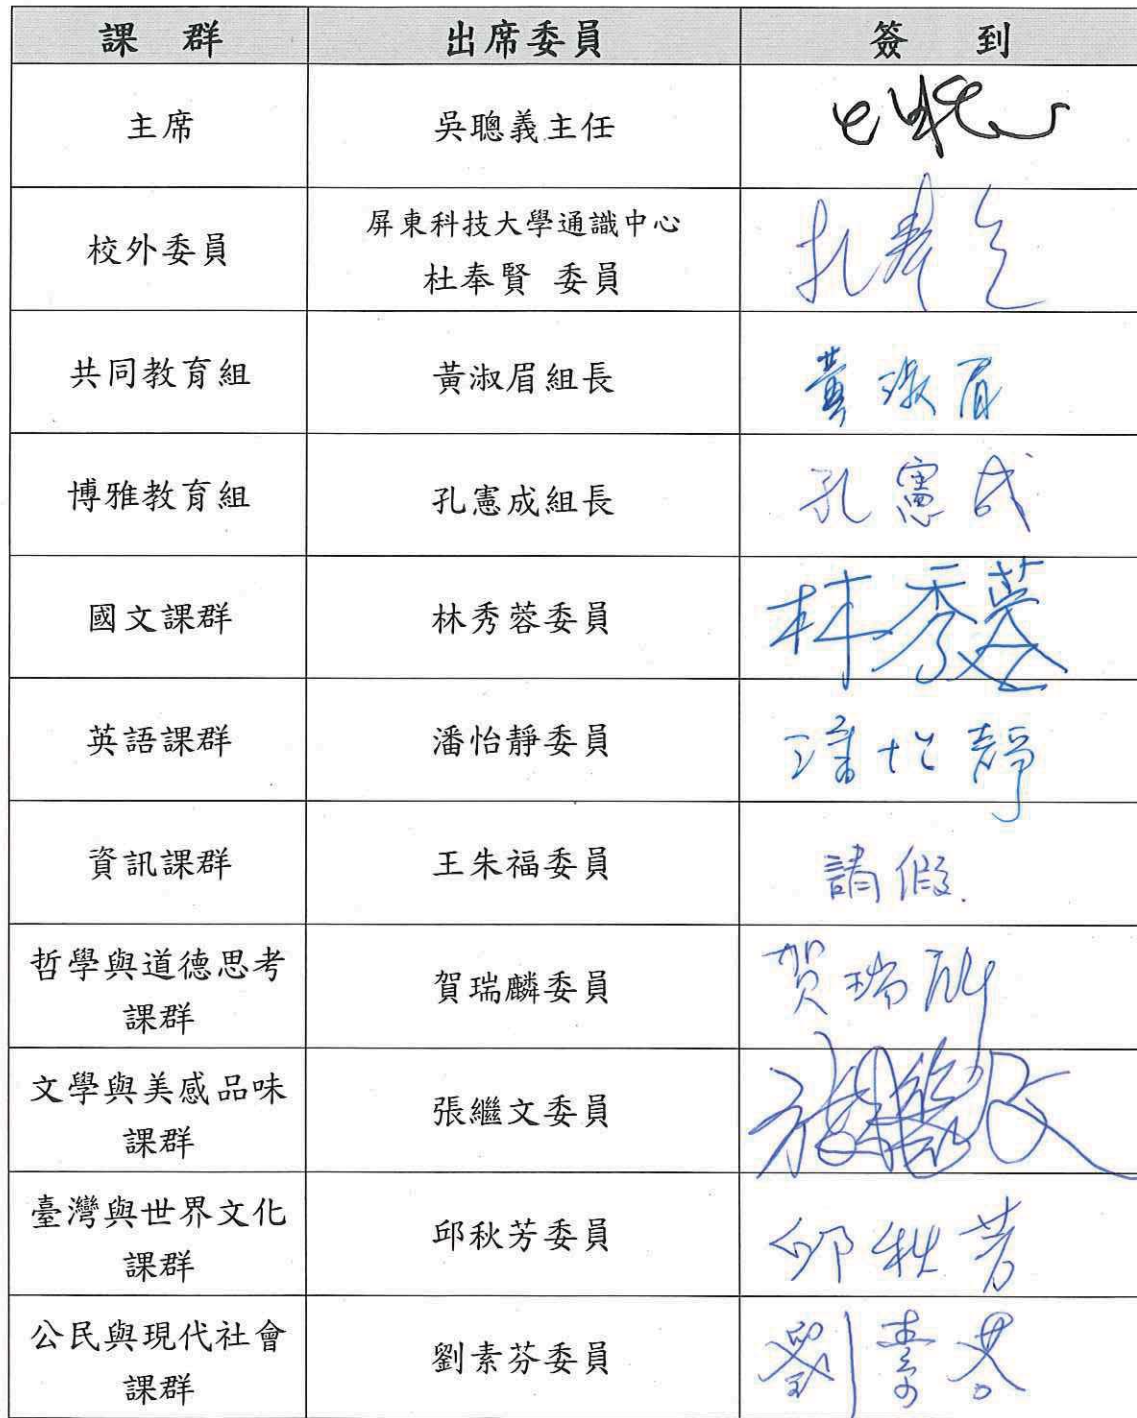 課 群 出席委員 簽 到
主席 吳聰義主任
校外委員 屏東科技大學通識中心
杜奉賢 委員
共同教育組 黃淑眉組長 黃淑眉
博雅教育組 孔憲成組長 孔憲成
國文課群 林秀蓉委員 林秀蓉
英語課群 潘怡靜委員 潘怡靜
資訊課群 王朱福委員 請假.
哲學與道德思考
課群 賀瑞麟委員 賀瑞麟
文學與美感品味
課群 張繼文委員 張繼文
臺灣與世界文化
課群 邱秋芳委員 邱秋芳
公民與現代社會
課群 劉素芬委員 劉素芬